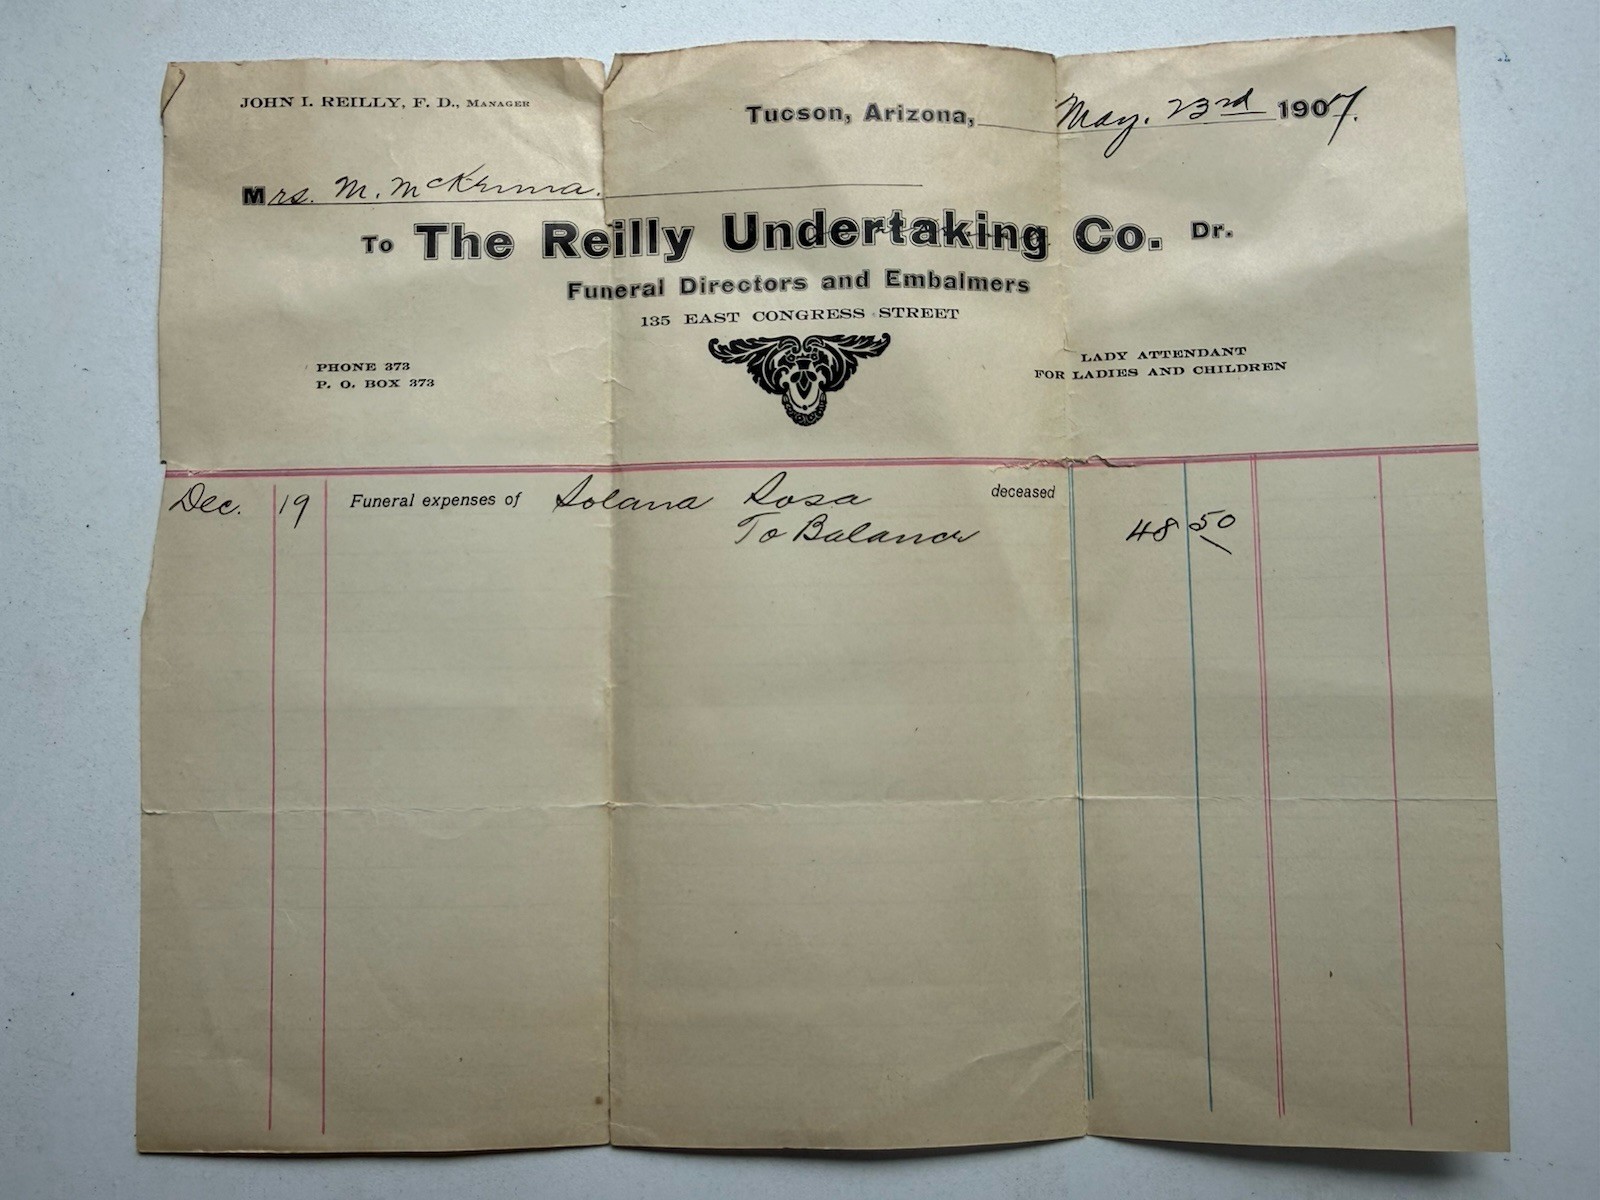 JOHN I. REILLY, F. D., MANAGER
Tucson, Arizona, May. 23rd 1907.
Mrs. M. McKenna.
To The Reilly Undertaking Co. Dr.
Funeral Directors and Embalmers
135 EAST CONGRESS STREET
PHONE 373
P. O. BOX 373
LADY ATTENDANT
FOR LADIES AND CHILDREN
Dec. 19 Funeral expenses of Solana Sosa deceased
To Balance 48 50